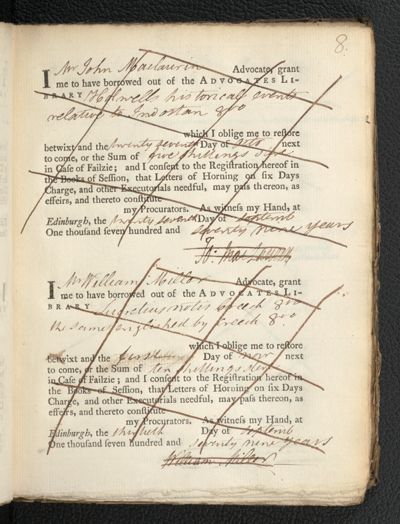 8.
I Mr John Maclaurin Advocate, grant
me to have borrowed out of the ADVOCATES LI-
BRARY Holwells historical events
relative to Indostan 8vo
which I oblige me to reſtore
betwixt and the twenty seventh Day of octo next
to come, or the Sum of five shillings Ster
in Caſe of Failzie; and I conſent to the Regiſtration hereof in
the Books of Seſſion, that Letters of Horning on ſix Days
Charge, and other Executorials needful, may paſs thereon, as
effeirs, and thereto conſtitute
my Procurators. As witneſs my Hand, at
Edinburgh, the twenty seventh Day of septemb
One thouſand ſeven hundred and seventy nine years
I Mr William Miller Advocate, grant
me to have borrowed out of the ADVOCATES LI-
BRARY Lucretius notis Creech 8vo
the same englished by Creech 8o.
which I oblige me to reſtore
betwixt and the first Day of Nov next
to come, or the Sum of ten shillings Ster
in Caſe of Failzie; and I conſent to the Regiſtration hereof in
the Books of Seſſion, that Letters of Horning on ſix Days
Charge, and other Executorials needful, may paſs thereon, as
effeirs, and thereto conſtitute
my Procurators. As witneſs my Hand, at
Edinburgh, the thirtieth Day of septemb
One thouſand ſeven hundred and seventy nine years
William Miller